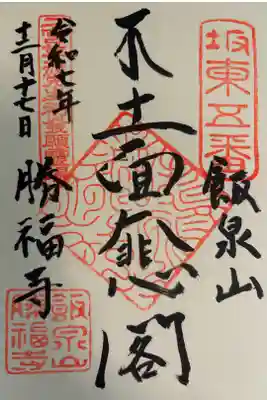 坂東五番
飯泉山
十一面大悲閣
令和七年
十二月十七日
勝福寺
飯泉山
勝福寺